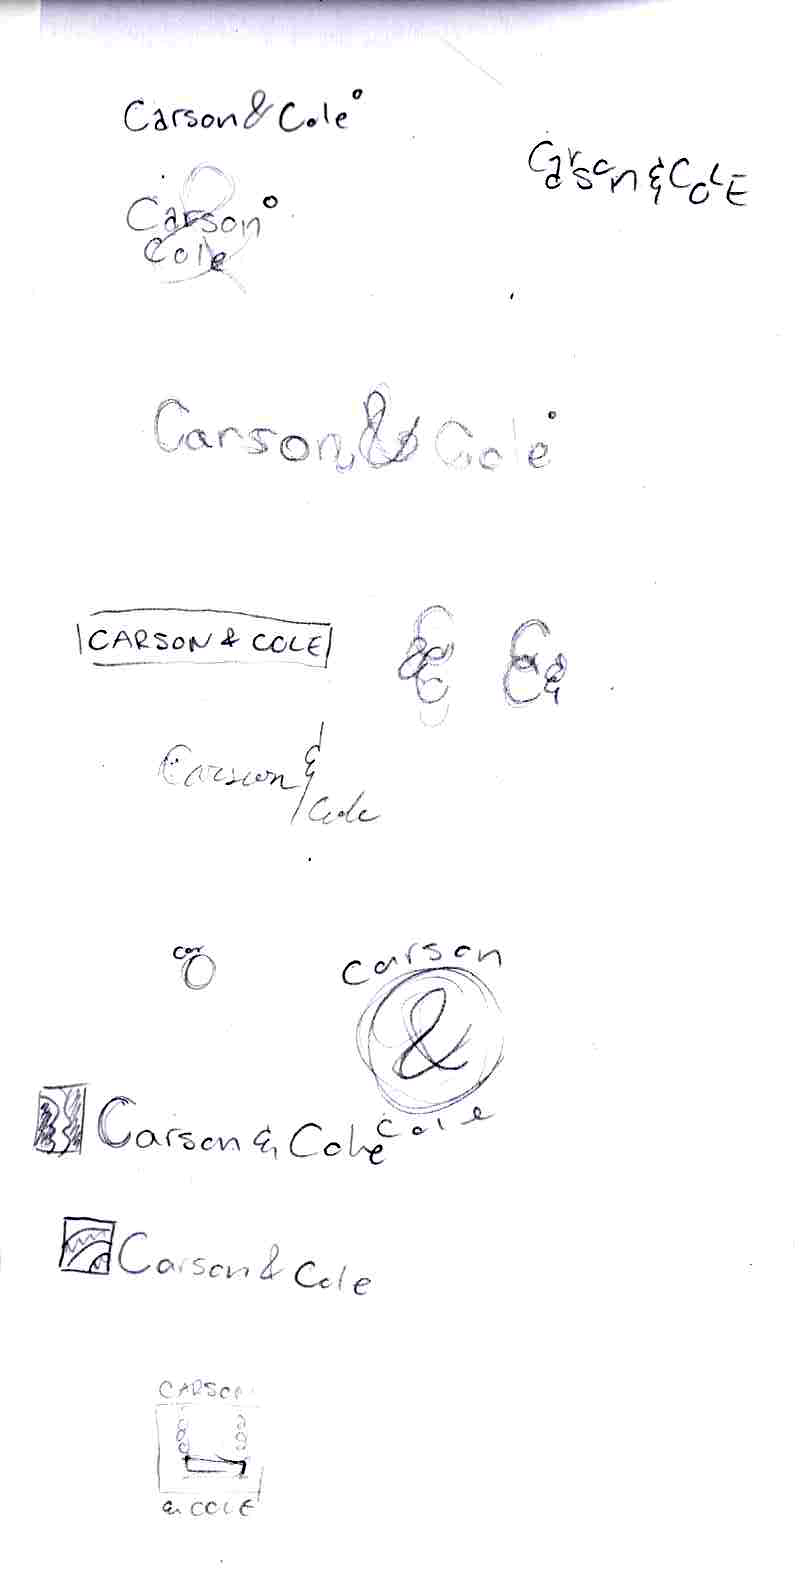 Carson & Cole°
Carson & CoLE
Carson°
&
Cole
Carson & Cole°
CARSON & COLE
Carson
&
Cole
Car
Carson
&
Cole
Carson & Cole
Carson & Cole
CARSON
& COLE